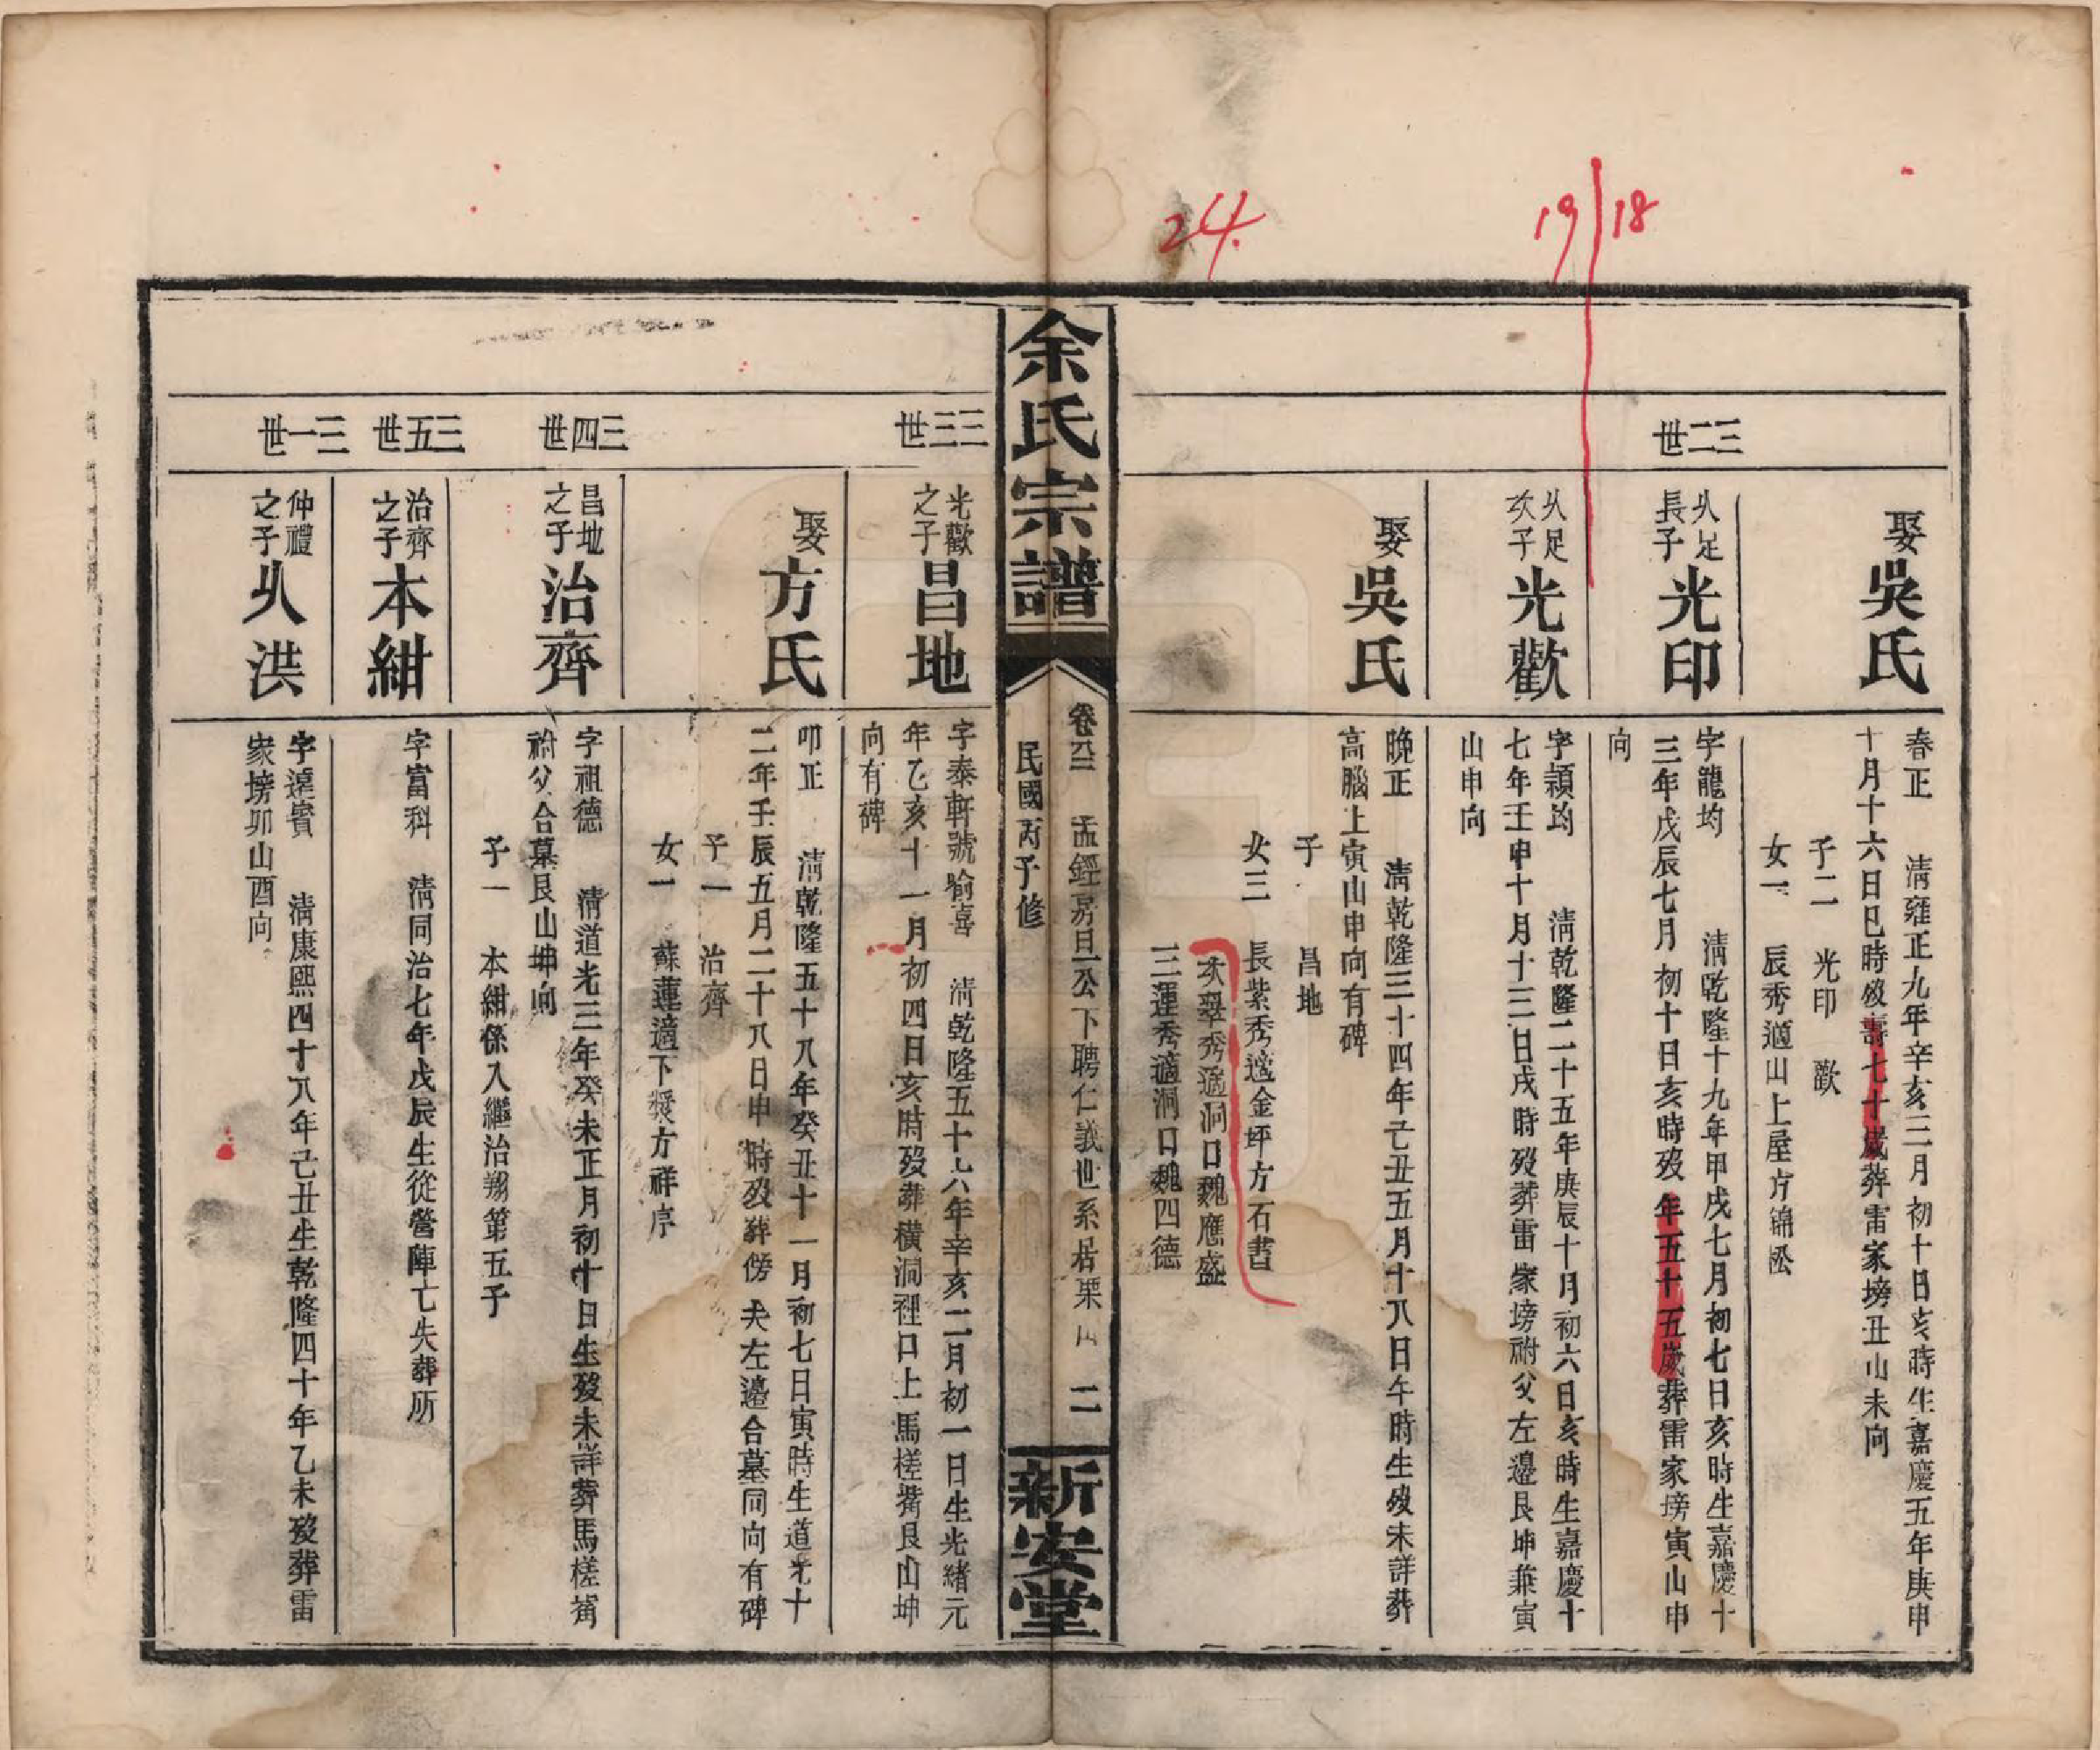 24.
19
18
三二世
娶
吳氏
春正 清雍正九年辛亥三月初十日亥時生嘉慶五年庚申
十月十六日巳時歿壽七十歲葬雷家塝丑山未向
子二 光印 歡
女一 辰秀適山上屋方錦
乆足
長子
光印
字龍均 清乾隆十九年甲戌七月初七日亥時生嘉慶十
三年戊辰七月初十日亥時歿年五十五歲葬雷家塝寅山申
向
乆足
次子
光歡
字穎均 清乾隆二十五年庚辰十月初六日亥時生嘉慶十
七年壬申十月十三日戌時歿葬雷家塝祔父左邊艮坤兼寅
山申向
娶
吳氏
晚正 清乾隆三十四年己丑五月十八日午時生歿未詳葬
高腦上寅山申向有碑
子 昌地
女三 長紫秀適金坪方石書
次翠秀適洞口魏應盛
三運秀適洞口魏四德
余氏宗譜
卷 孟 公下聘仁義世系居栗 二
民國丙子修
新安堂
三三世
光歡
之子
昌地
字泰軒號喻喜 清乾隆五十六年辛亥二月初一日生光緒元
年乙亥十一月初四日亥時歿葬橫洞裡口上馬槎嘴艮山坤
向有碑
娶
方氏
叩正 清乾隆五十八年癸丑十一月初七日寅時生道光十
二年壬辰五月二十八日申時歿葬傍夫左邊合墓同向有碑
子一 治齊
女一 蘇蓮適下獎方祥序
三四世
昌地
之子
治齊
字祖德 清道光三年癸未正月初十日生歿未詳葬馬槎
祔父合墓艮山坤向
子一 本紺係入繼治翔第五子
三五世
治齊
之子
本紺
字富科 清同治七年戊辰生從營陣亡失葬所
三一世
仲禮
之子
乆洪
字達賓 清康熙四十八年己丑生乾隆四十年乙未歿葬雷
家塝卯山酉向